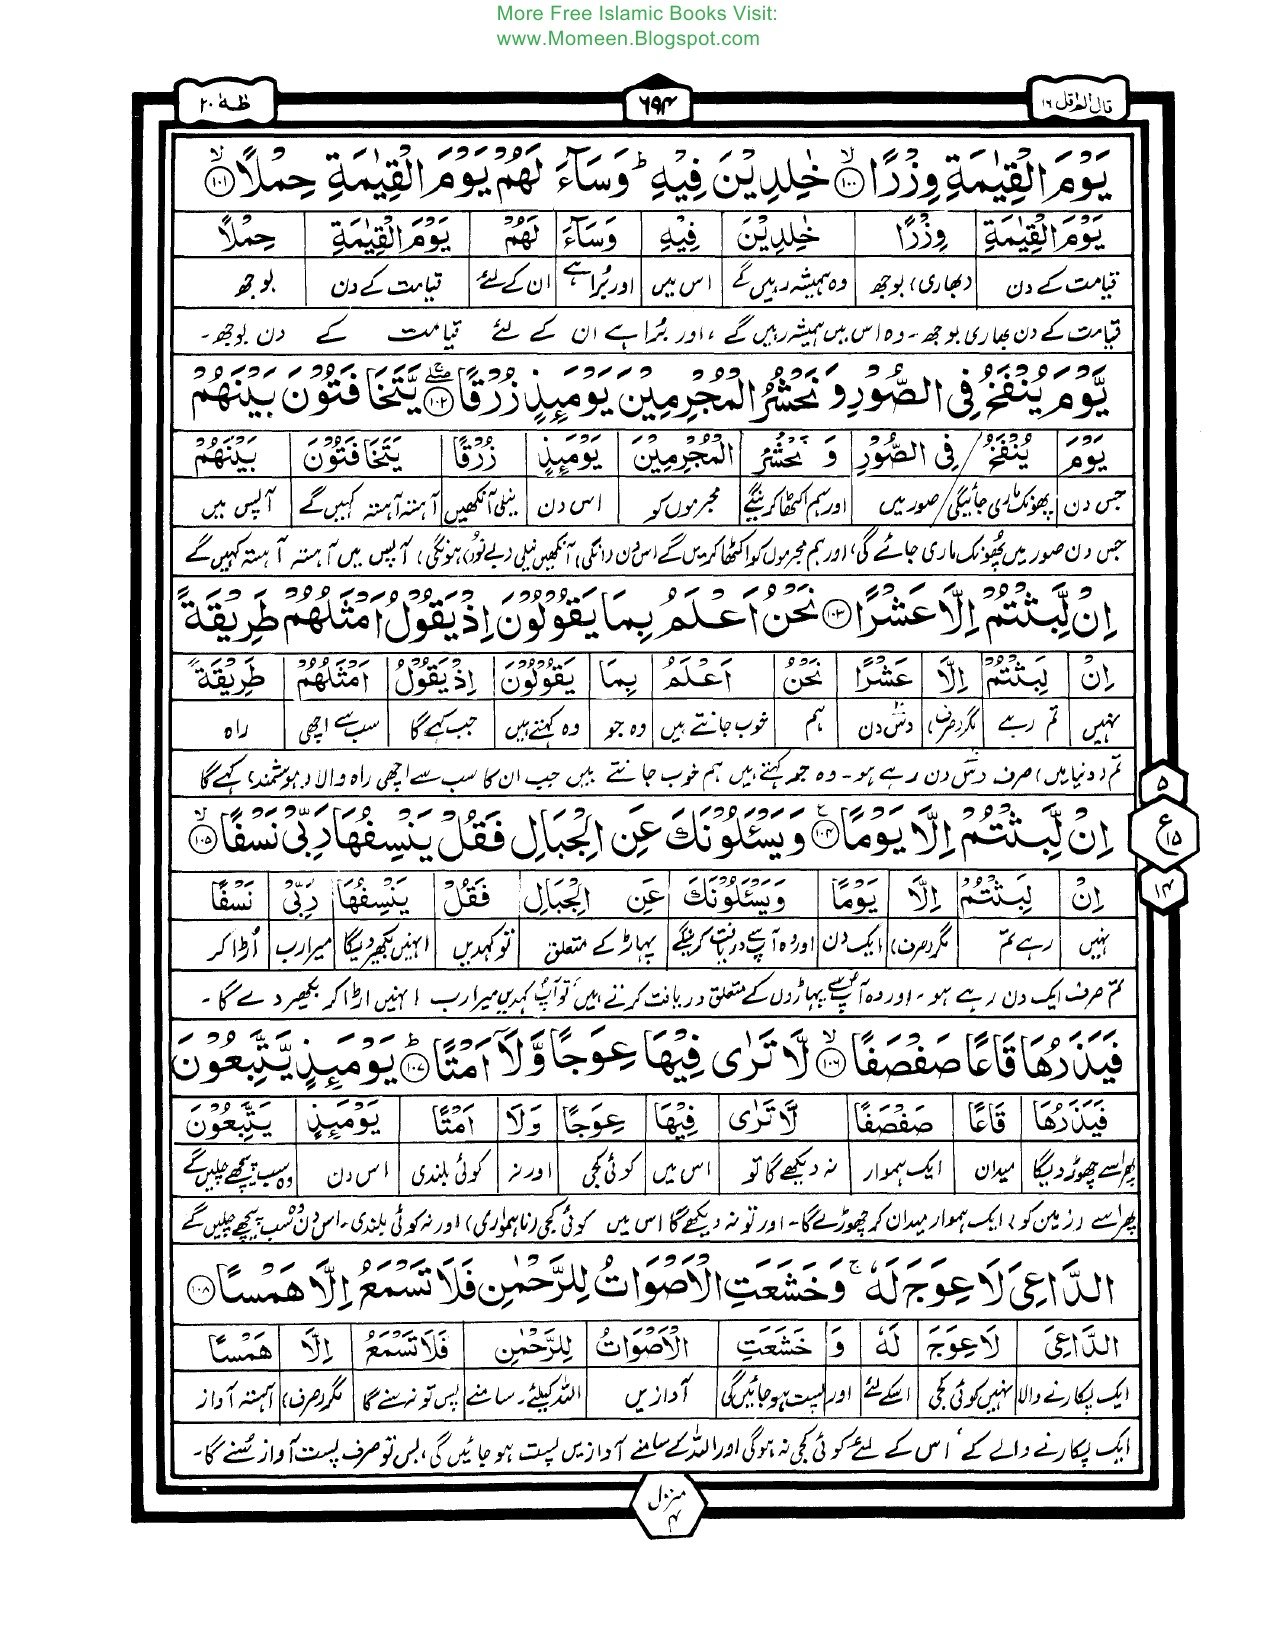 More Free Islamic Books Visit:
www.Momeen.Blogspot.com
قال الم قل ١٦ ٦٩٤ طٰهٰ ٢٠
يَوْمَ الْقِيٰمَةِ وِزْرًا ۙ۱۰۰ خٰلِدِيْنَ فِيْهِ ؕ وَسَآءَ لَهُمْ يَوْمَ الْقِيٰمَةِ حِمْلًا ۙ۱۰۱
يَوْمَ الْقِيٰمَةِ وِزْرًا خٰلِدِيْنَ فِيْهِ وَسَآءَ لَهُمْ يَوْمَ الْقِيٰمَةِ حِمْلًا
قیامت کے دن (بھاری) بوجھ وہ ہمیشہ رہیں گے اس میں اور بُرا ہے ان کے لئے قیامت کے دن بوجھ
قیامت کے دن بھاری بوجھ۔ وہ اس میں ہمیشہ رہیں گے، اور بُرا ہے ان کے لئے قیامت کے دن بوجھ۔
يَّوْمَ يُنْفَخُ فِى الصُّوْرِ وَ نَحْشُرُ الْمُجْرِمِيْنَ يَوْمَئِذٍ زُرْقًا ۱۰۲ يَّتَخَافَتُوْنَ بَيْنَهُمْ
يَوْمَ يُنْفَخُ / فِى الصُّوْرِ وَ نَحْشُرُ الْمُجْرِمِيْنَ يَوْمَئِذٍ زُرْقًا يَتَخَافَتُوْنَ بَيْنَهُمْ
جس دن پھونک ماری جائیگی / صور میں اور ہم اکٹھا کرینگے مجرموں کو اس دن نیلی آنکھیں آہستہ آہستہ کہیں گے آپس میں
جس دن صور میں پھونک ماری جائے گی، اور ہم مجرموں کو اکٹھا کریں گے اس دن (انکی) آنکھیں نیلی (بے نور) ہونگی، آپس میں آہستہ آہستہ کہیں گے
اِنْ لَّبِثْتُمْ اِلَّا عَشْرًا ۱۰۳ نَحْنُ اَعْلَمُ بِمَا يَقُوْلُوْنَ اِذْ يَقُوْلُ اَمْثَلُهُمْ طَرِيْقَةً
اِنْ لَبِثْتُمْ اِلَّا عَشْرًا نَحْنُ اَعْلَمُ بِمَا يَقُوْلُوْنَ اِذْ يَقُوْلُ اَمْثَلُهُمْ طَرِيْقَةً
نہیں تم رہے مگر (صرف) دس دن ہم خوب جانتے ہیں وہ جو وہ کہتے ہیں جب کہے گا سب سے اچھی راہ
تم (دنیا میں) صرف دس دن رہے ہو۔ وہ جو کہتے ہیں ہم خوب جانتے ہیں جب ان کا سب سے اچھی راہ والا (ہوشمند) کہے گا
اِنْ لَّبِثْتُمْ اِلَّا يَوْمًا ۱۰۴ وَيَسْـَٔلُوْنَكَ عَنِ الْجِبَالِ فَقُلْ يَنْسِفُهَا رَبِّىْ نَسْفًا ۙ۱۰۵
اِنْ لَبِثْتُمْ اِلَّا يَوْمًا وَيَسْـَٔلُوْنَكَ عَنِ الْجِبَالِ فَقُلْ يَنْسِفُهَا رَبِّىْ نَسْفًا
نہیں رہے تم مگر (صرف) ایک دن اور وہ آپ سے دریافت کرینگے پہاڑ کے متعلق تو کہدیں انہیں بکھیر دیگا میرا رب اُڑا کر
تم صرف ایک دن رہے ہو۔ اور وہ آپ سے پہاڑوں کے متعلق دریافت کرتے ہیں، تو آپ کہدیں میرا رب انہیں اڑا کر بکھیر دے گا۔
٥
ع ١٥
١٤
فَيَذَرُهَا قَاعًا صَفْصَفًا ۙ۱۰۶ لَّا تَرٰى فِيْهَا عِوَجًا وَّلَآ اَمْتًا ؕ۱۰۷ يَوْمَئِذٍ يَّتَّبِعُوْنَ
فَيَذَرُهَا قَاعًا صَفْصَفًا لَّا تَرٰى فِيْهَا عِوَجًا وَلَا اَمْتًا يَوْمَئِذٍ يَتَّبِعُوْنَ
پھر اسے چھوڑ دیگا میدان ایک ہموار نہ دیکھے گا تو اس میں کوئی کجی اور نہ کوئی بلندی اس دن وہ سب پیچھے چلیں گے
پھر اسے (زمین کو) ایک ہموار میدان کر چھوڑے گا۔ اور تو نہ دیکھے گا اس میں کوئی کجی (ناہمواری) اور نہ کوئی بلندی۔ اس دن وہ سب پیچھے چلیں گے
الدَّاعِىَ لَا عِوَجَ لَهٗ ۚ وَخَشَعَتِ الْاَصْوَاتُ لِلرَّحْمٰنِ فَلَا تَسْمَعُ اِلَّا هَمْسًا ۱۰۸
الدَّاعِىَ لَا عِوَجَ لَهٗ وَ خَشَعَتِ الْاَصْوَاتُ لِلرَّحْمٰنِ فَلَا تَسْمَعُ اِلَّا هَمْسًا
ایک پکارنے والا نہیں کوئی کجی اسکے لئے اور پست ہو جائیں گی آوازیں اللہ کیلئے۔ سامنے پس تو نہ سنے گا مگر (صرف) آہستہ آواز
ایک پکارنے والے کے، اس کے لئے کوئی کجی نہ ہوگی اور اللہ کے سامنے آوازیں پست ہو جائیں گی، بس تو صرف پست آواز سُنے گا۔
منزل ٤